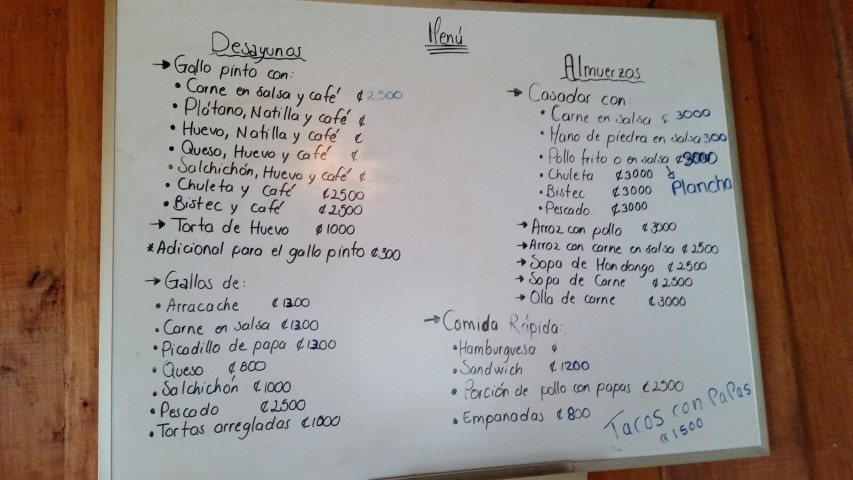 Menú
Desayunos
→ Gallo pinto con:
• Carne en salsa y café ₡2500
• Plátano, Natilla y café ₡
• Huevo, Natilla y café ₡
• Queso, Huevo y café ₡
• Salchichón, Huevo y café ₡
• Chuleta y café ₡2500
• Bistec y café ₡2500
→ Torta de Huevo ₡1000
*Adicional para el gallo pinto ₡300
→ Gallos de:
• Arracache ₡1300
• Carne en salsa ₡1300
• Picadillo de papa ₡1300
• Queso ₡800
• Salchichón ₡1000
• Pescado ₡2500
• Tortas arregladas ₡1000
Almuerzos
→ Casados con:
• Carne en salsa ₡3000
• Mano de piedra en salsa 300
• Pollo frito o en salsa ₡3000
• Chuleta ₡3000
Plancha
• Bistec ₡3000
• Pescado ₡3000
→ Arroz con pollo ₡3000
→ Arroz con carne en salsa ₡2500
→ Sopa de Mondongo ₡2500
→ Sopa de Carne ₡2500
→ Olla de carne ₡3000
→ Comida Rápida:
• Hamburguesa ₡
• Sandwich ₡1200
• Porción de pollo con papas ₡2500
• Empanadas ₡800
Tacos con PaPas
₡1500